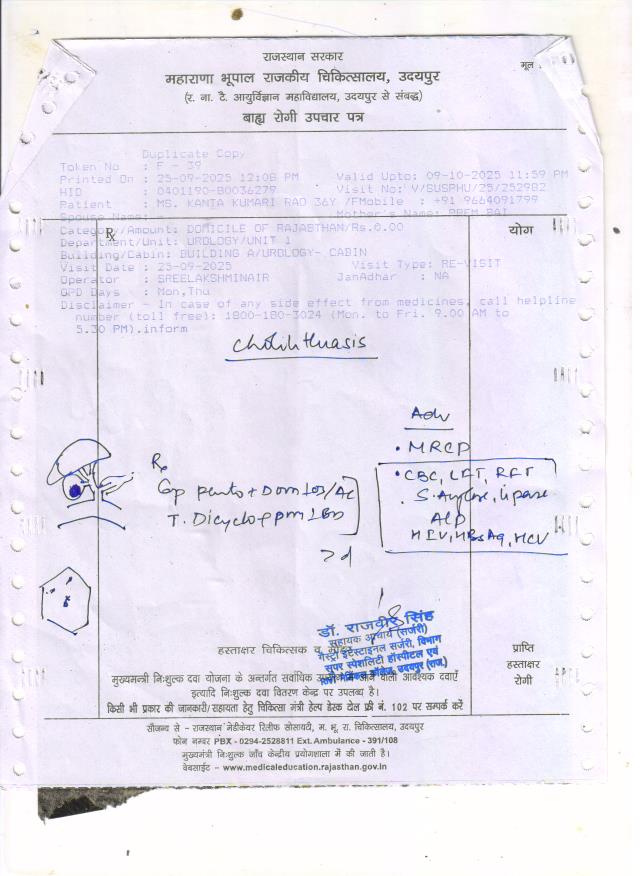 राजस्थान सरकार
महाराणा भूपाल राजकीय चिकित्सालय, उदयपुर
मूल
(र. ना. टै. आयुर्विज्ञान महाविद्यालय, उदयपुर से संबद्ध)
बाह्य रोगी उपचार पत्र
Duplicate Copy
Token No : F - 39
Printed On : 25-09-2025 12:08 PM Valid Upto: 09-10-2025 11:59 PM
HID : 0401190-B0036279 Visit No: V/SUSPHU/25/252982
Patient : MS. KANTA KUMARI RAO 36Y /F Mobile : +91 9664091799
Spouse Name: - Mother's Name: PREM BAI
Category/Amount: DOMICILE OF RAJASTHAN/Rs.0.00
Rx योग
Department/Unit: UROLOGY/UNIT 1
Building/Cabin: BUILDING A/UROLOGY- CABIN
Visit Date : 25-09-2025 Visit Type: RE-VISIT
Operator : SREELAKSHMINAIR JanAdhar : NA
OPD Days : Mon,Thu
Disclaimer - In case of any side effect from medicines, call helpline
number (toll free): 1800-180-3024 (Mon. to Fri. 9.00 AM to
5.30 PM).inform
Adv
• MRCP
Rx
• CBC, LFT, RFT
Cap Panto + Dom 1 OD/AC
• S. Amylase, Lipase
T. Dicyclo + pcm 1 BD
ALP
HIV, HBsAg, HCV
डॉ. राजवीर सिंह
सहायक आचार्य (सर्जरी)
गैस्ट्रो इंटेस्टाइनल सर्जरी, विभाग
सुपर स्पेशलिटी हॉस्पीटल एवं
मेडिकल कॉलेज, उदयपुर (राज.)
हस्ताक्षर चिकित्सक व
प्राप्ति
हस्ताक्षर
रोगी
मुख्यमंत्री निःशुल्क दवा योजना के अन्तर्गत सर्वाधिक आने वाली आवश्यक दवाएँ
इत्यादि निःशुल्क दवा वितरण केन्द्र पर उपलब्ध है।
किसी भी प्रकार की जानकारी/सहायता हेतु चिकित्सा मंत्री हेल्प डेस्क टोल फ्री नं. 102 पर सम्पर्क करें
सौजन्य से - राजस्थान मेडीकेयर रिलीफ सोसायटी, म. भू. रा. चिकित्सालय, उदयपुर
फोन नम्बर PBX - 0294-2528811 Ext. Ambulance - 391/108
मुख्यमंत्री निःशुल्क जाँच केन्द्रीय प्रयोगशाला में की जाती है।
वेबसाईट - www.medicaleducation.rajasthan.gov.in